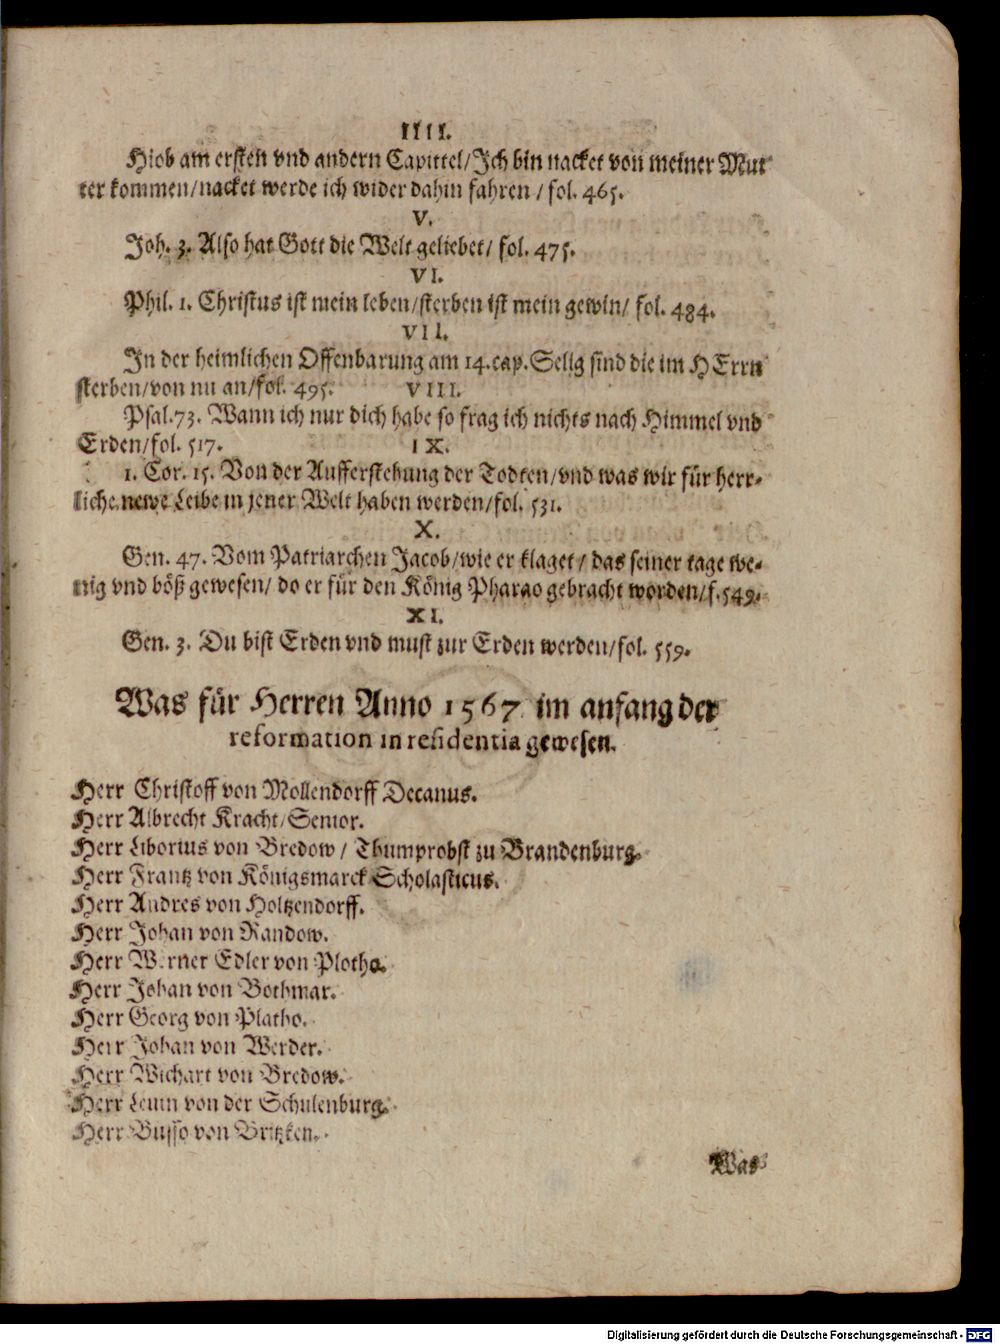 IIII.
Hiob am ersten vnd andern Capittel/Ich bin nacket von meiner Mut
ter kommen/nacket werde ich wider dahin fahren / fol. 465.
V.
Joh. 3. Also hat Gott die Welt geliebet/ fol. 475.
VI.
Phil. 1. Christus ist mein leben/sterben ist mein gewin/ fol. 484.
VII.
In der heimlichen Offenbarung am 14.cap. Selig sind die im HErrn
sterben/von nu an/fol. 495. VIII.
Psal.73. Wann ich nur dich habe so frag ich nichts nach Himmel vnd
Erden/fol. 517. IX.
1. Cor. 15. Von der Aufferstehung der Todten/vnd was wir für herr-
liche newe Leibe in jener Welt haben werden/fol. 531.
X.
Gen. 47. Vom Patriarchen Jacob/wie er klaget/ das seiner tage we-
nig vnd böß gewesen/ do er für den König Pharao gebracht worden/f.549.
XI.
Gen. 3. Du bist Erden vnd must zur Erden werden/fol. 559.
Was für Herren Anno 1567 im anfang der
reformation in residentia gewesen.
Herr Christoff von Mollendorff Decanus.
Herr Albrecht Kracht/Senior.
Herr Liborius von Bredow / Thumprobst zu Brandenburg.
Herr Frantz von Königsmarck Scholasticus.
Herr Andres von Holtzendorff.
Herr Johan von Randow.
Herr Werner Edler von Plotho.
Herr Johan von Bothmar.
Herr Georg von Platho.
Herr Johan von Werder.
Herr Wichart von Bredow.
Herr Leuin von der Schulenburg.
Herr Busso von Britzken.
Was
Digitalisierung gefördert durch die Deutsche Forschungsgemeinschaft - DFG